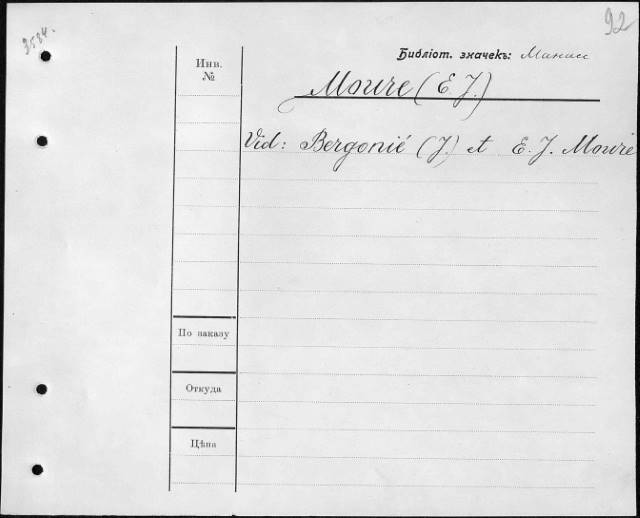 3534.
92
Библіот. значекъ: Манасс
Инв.
№
Moure (E. J.)
Vid: Bergonié (J.) et E. J. Moure
По заказу
Откуда
Цѣна